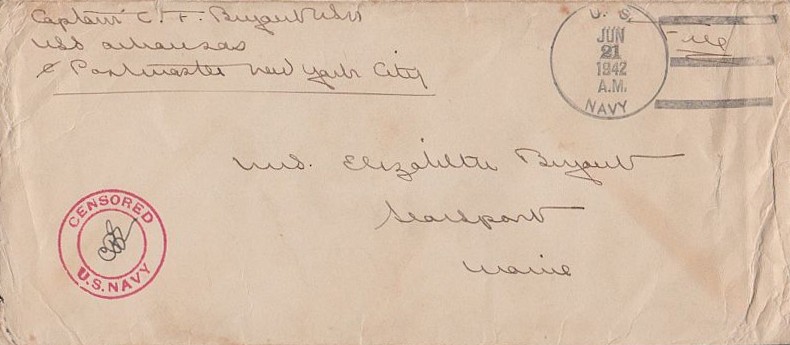 Captain C. F. Bryant USN
USS Arkansas
c/o Postmaster New York City
U. S.
JUN
21
1942
A.M.
NAVY
Free
Mrs. Elizabeth Bryant
Searsport
Maine
CENSORED
U.S. NAVY